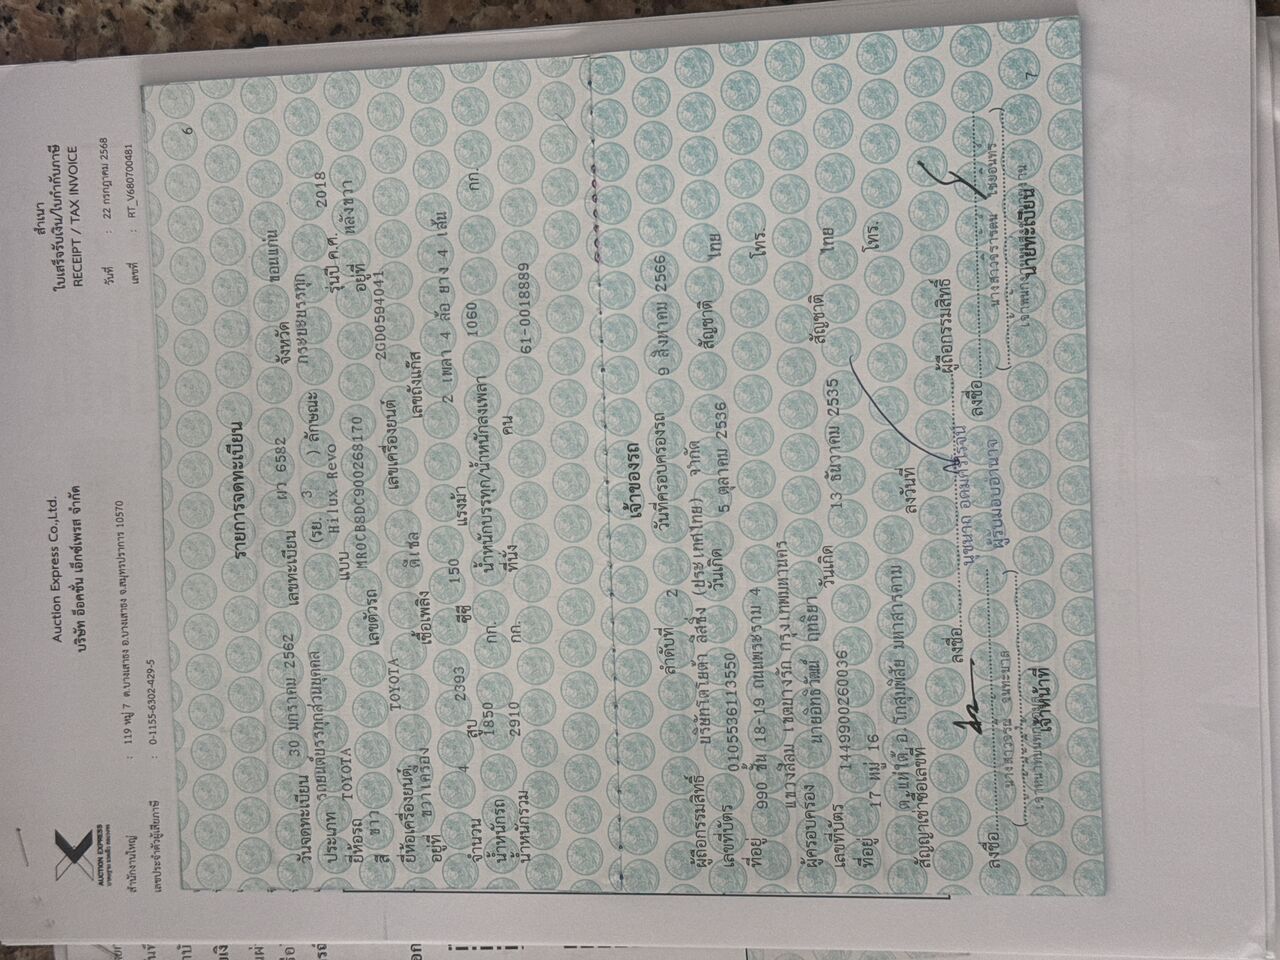 AUCTION EXPRESS
Auction Express Co.,Ltd.
บริษัท อ๊อคชั่น เอ็กซ์เพรส จำกัด
สำเนา
ใบเสร็จรับเงิน/ใบกำกับภาษี
RECEIPT / TAX INVOICE
สำนักงานใหญ่ : 119 หมู่ 7 ต.บางเสาธง อ.บางเสาธง จ.สมุทรปราการ 10570
วันที่ : 22 กรกฎาคม 2568
เลขประจำตัวผู้เสียภาษี : 0-1155-6302-429-5
เลขที่ : RT_V680700481
6
รายการจดทะเบียน
วันจดทะเบียน 30 มกราคม 2562 เลขทะเบียน ผา 6582 จังหวัด ขอนแก่น
ประเภท รถยนต์บรรทุกส่วนบุคคล (รย. 3 ) ลักษณะ กระบะบรรทุก
ยี่ห้อรถ TOYOTA แบบ Hilux Revo รุ่นปี ค.ศ. 2018
สี ขาว เลขตัวรถ MR0CB8DC900268170 อยู่ที่ หลังขวา
ยี่ห้อเครื่องยนต์ TOYOTA เลขเครื่องยนต์ 2GD0594041
อยู่ที่ ขวาเครื่อง เชื้อเพลิง ดีเซล เลขถังแก๊ส
จำนวน 4 สูบ 2393 ซีซี 150 แรงม้า 2 เพลา 4 ล้อ ยาง 4 เส้น
น้ำหนักรถ 1850 กก. น้ำหนักบรรทุก/น้ำหนักลงเพลา 1060 กก.
น้ำหนักรวม 2910 กก. ที่นั่ง คน 61-0018889
เจ้าของรถ
ลำดับที่ 2 วันที่ครอบครองรถ 9 สิงหาคม 2566
ผู้ถือกรรมสิทธิ์ บริษัทโตโยต้า ลีสซิ่ง (ประเทศไทย) จำกัด
เลขที่บัตร 0105536113550 วันเกิด 5 ตุลาคม 2536 สัญชาติ ไทย
ที่อยู่ 990 ชั้น 18-19 ถนนพระราม 4 โทร.
แขวงสีลม เขตบางรัก กรุงเทพมหานคร
ผู้ครอบครอง นายอิทธิวัฒน์ ฤทธิยา
เลขที่บัตร 1449900260036 วันเกิด 13 ธันวาคม 2535 สัญชาติ ไทย
ที่อยู่ 17 หมู่ 16 โทร.
ต.แห่ใต้ อ.โกสุมพิสัย มหาสารคาม
สัญญาเช่าซื้อเลขที่ ลงวันที่
ลงชื่อ ผู้ถือกรรมสิทธิ์
ผู้รับมอบอำนาจ
ลงชื่อ
ลงชื่อ
เจ้าหน้าที่
นายทะเบียน
7